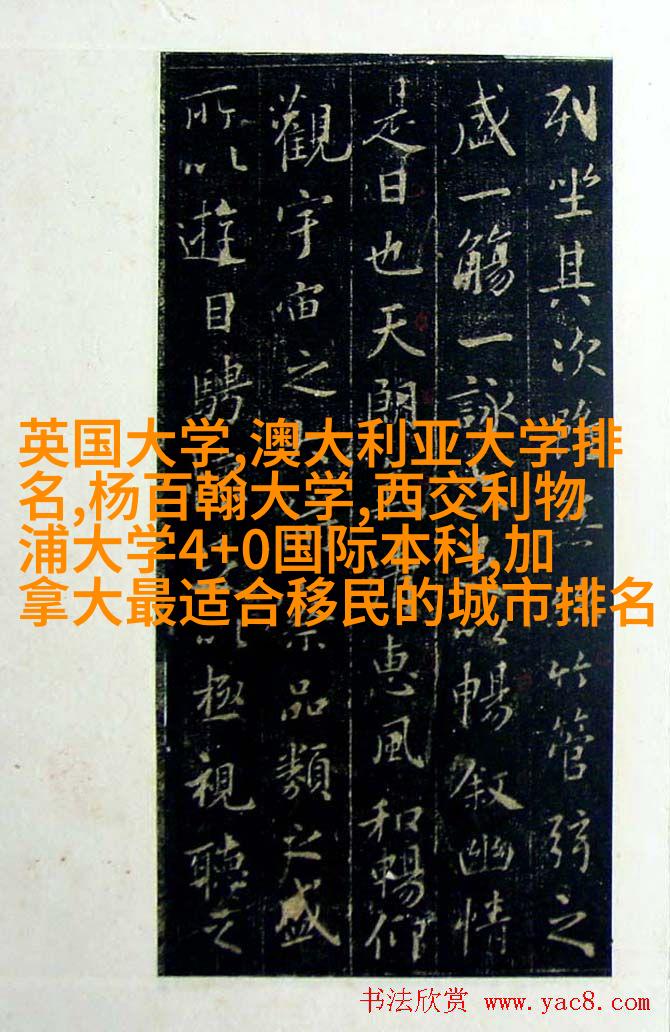 列坐其次竹管弦之
盛一觴一詠暢叙幽情
是日也天朗惠風和暢仰
觀宇宙之品類之盛
所以遊目騁以極視聽之
英国大学,澳大利亚大学排
名,杨百翰大学,西交利物
浦大学4+0国际本科,加
拿大最适合移民的城市排名
书法欣赏 www.yac8.com